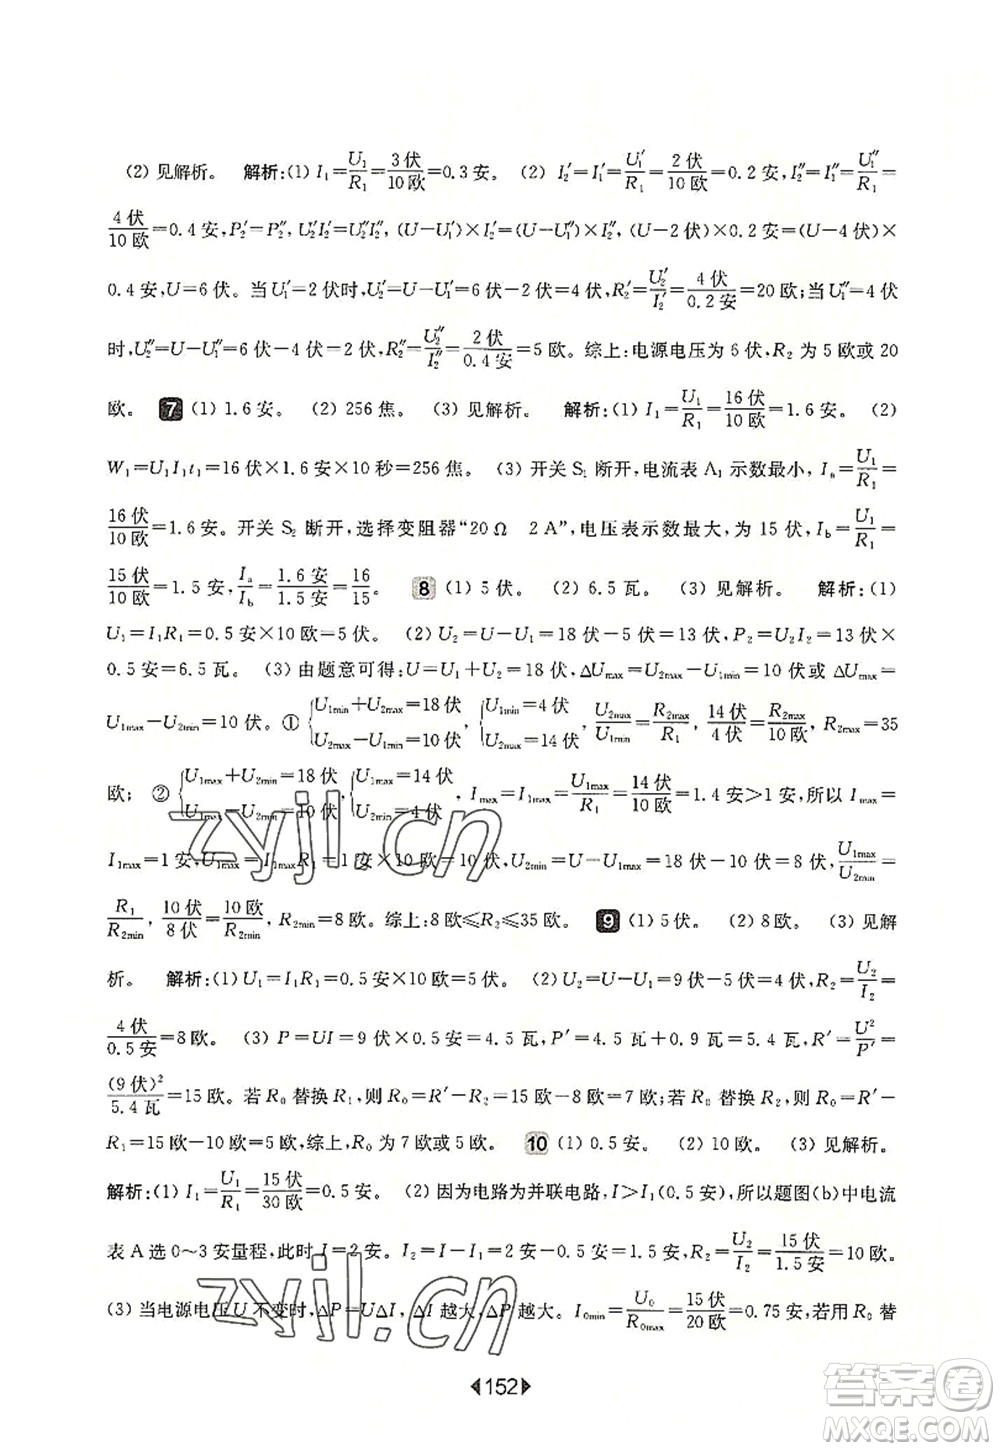 (2) 见解析。 解析:(1) I₁=U₁/R₁=3伏/10欧=0.3安。 (2) I₂′=I₁′=U₁′/R₁=2伏/10欧=0.2安,I₂″=I₁″=U₁″/R₁=
4伏/10欧=0.4安,P₂′=P₂″,U₂′I₂′=U₂″I₂″,(U-U₁′)×I₂′=(U-U₁″)×I₂″,(U-2伏)×0.2安=(U-4伏)×
0.4安,U=6伏。当U₁′=2伏时,U₂′=U-U₁′=6伏-2伏=4伏,R₂′=U₂′/I₂′=4伏/0.2安=20欧;当U₁″=4伏
时,U₂″=U-U₁″=6伏-4伏=2伏,R₂″=U₂″/I₂″=2伏/0.4安=5欧。综上:电源电压为6伏,R₂为5欧或20
欧。 7 (1) 1.6安。 (2) 256焦。 (3) 见解析。 解析:(1) I₁=U₁/R₁=16伏/10欧=1.6安。 (2)
W₁=U₁I₁t₁=16伏×1.6安×10秒=256焦。 (3) 开关S₁断开,电流表A₁示数最小,Iₐ=U₁/R₁=
16伏/10欧=1.6安。开关S₂断开,选择变阻器“20Ω 2A”,电压表示数最大,为15伏,I_b=U₁/R₁=
15伏/10欧=1.5安,Iₐ/I_b=1.6安/1.5安=16/15。 8 (1) 5伏。 (2) 6.5瓦。 (3) 见解析。 解析:(1)
U₁=I₁R₁=0.5安×10欧=5伏。 (2) U₂=U-U₁=18伏-5伏=13伏,P₂=U₂I₂=13伏×
0.5安=6.5瓦。 (3) 由题意可得:U=U₁+U₂=18伏,ΔUmax=U2max-U1min=10伏或ΔUmax=
U1max-U2min=10伏。① {U1min+U2max=18伏 U2max-U1min=10伏, {U1min=4伏 U2max=14伏, U2max/U1min=R2max/R₁,14伏/4伏=R2max/10欧,R2max=35
欧; ② {U1max+U2min=18伏 U1max-U2min=10伏, {U1max=14伏 U2min=4伏, Imax=I1max=U1max/R₁=14伏/10欧=1.4安>1安,所以Imax=
I1max=1安,U1max=I1maxR₁=1安×10欧=10伏,U2min=U-U1max=18伏-10伏=8伏,U1max/U2min=
R₁/R2min,10伏/8伏=10欧/R2min,R2min=8欧。综上:8欧≤R₂≤35欧。 9 (1) 5伏。 (2) 8欧。 (3) 见解
析。 解析:(1) U₁=I₁R₁=0.5安×10欧=5伏。 (2) U₂=U-U₁=9伏-5伏=4伏,R₂=U₂/I₂=
4伏/0.5安=8欧。 (3) P=UI=9伏×0.5安=4.5瓦,P′=4.5瓦+0.9瓦=5.4瓦,R′=U²/P′=
(9伏)²/5.4瓦=15欧。若R₀替换R₁,则R₀=R′-R₂=15欧-8欧=7欧;若R₀替换R₂,则R₀=R′-
R₁=15欧-10欧=5欧,综上,R₀为7欧或5欧。 10 (1) 0.5安。 (2) 10欧。 (3) 见解析。
解析:(1) I₁=U₁/R₁=15伏/30欧=0.5安。 (2) 因为电路为并联电路,I>I₁(0.5安),所以题图(b)中电流
表A选0~3安量程,此时I=2安。I₂=I-I₁=2安-0.5安=1.5安,R₂=U₂/I₂=15伏/1.5安=10欧。
(3) 当电源电压U不变时,ΔP=UΔI,ΔI越大,ΔP越大。I0min=U₀/R0max=15伏/20欧=0.75安,若用R₀替
152
zyjl.cn
zyjl.cn
答案圈
MXQE.COM